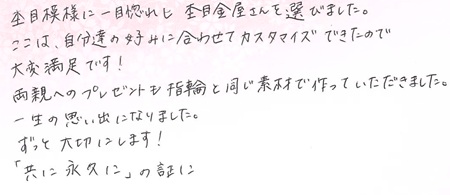 杢目模様に一目惚れし 杢目金屋さんを選びました。
ここは、自分達の好みに合わせてカスタマイズできたので
大変満足です！
両親へのプレゼントも指輪と同じ素材で作っていただきました。
一生の思い出になりました。
ずっと大切にします！
「共に永久に」の証に